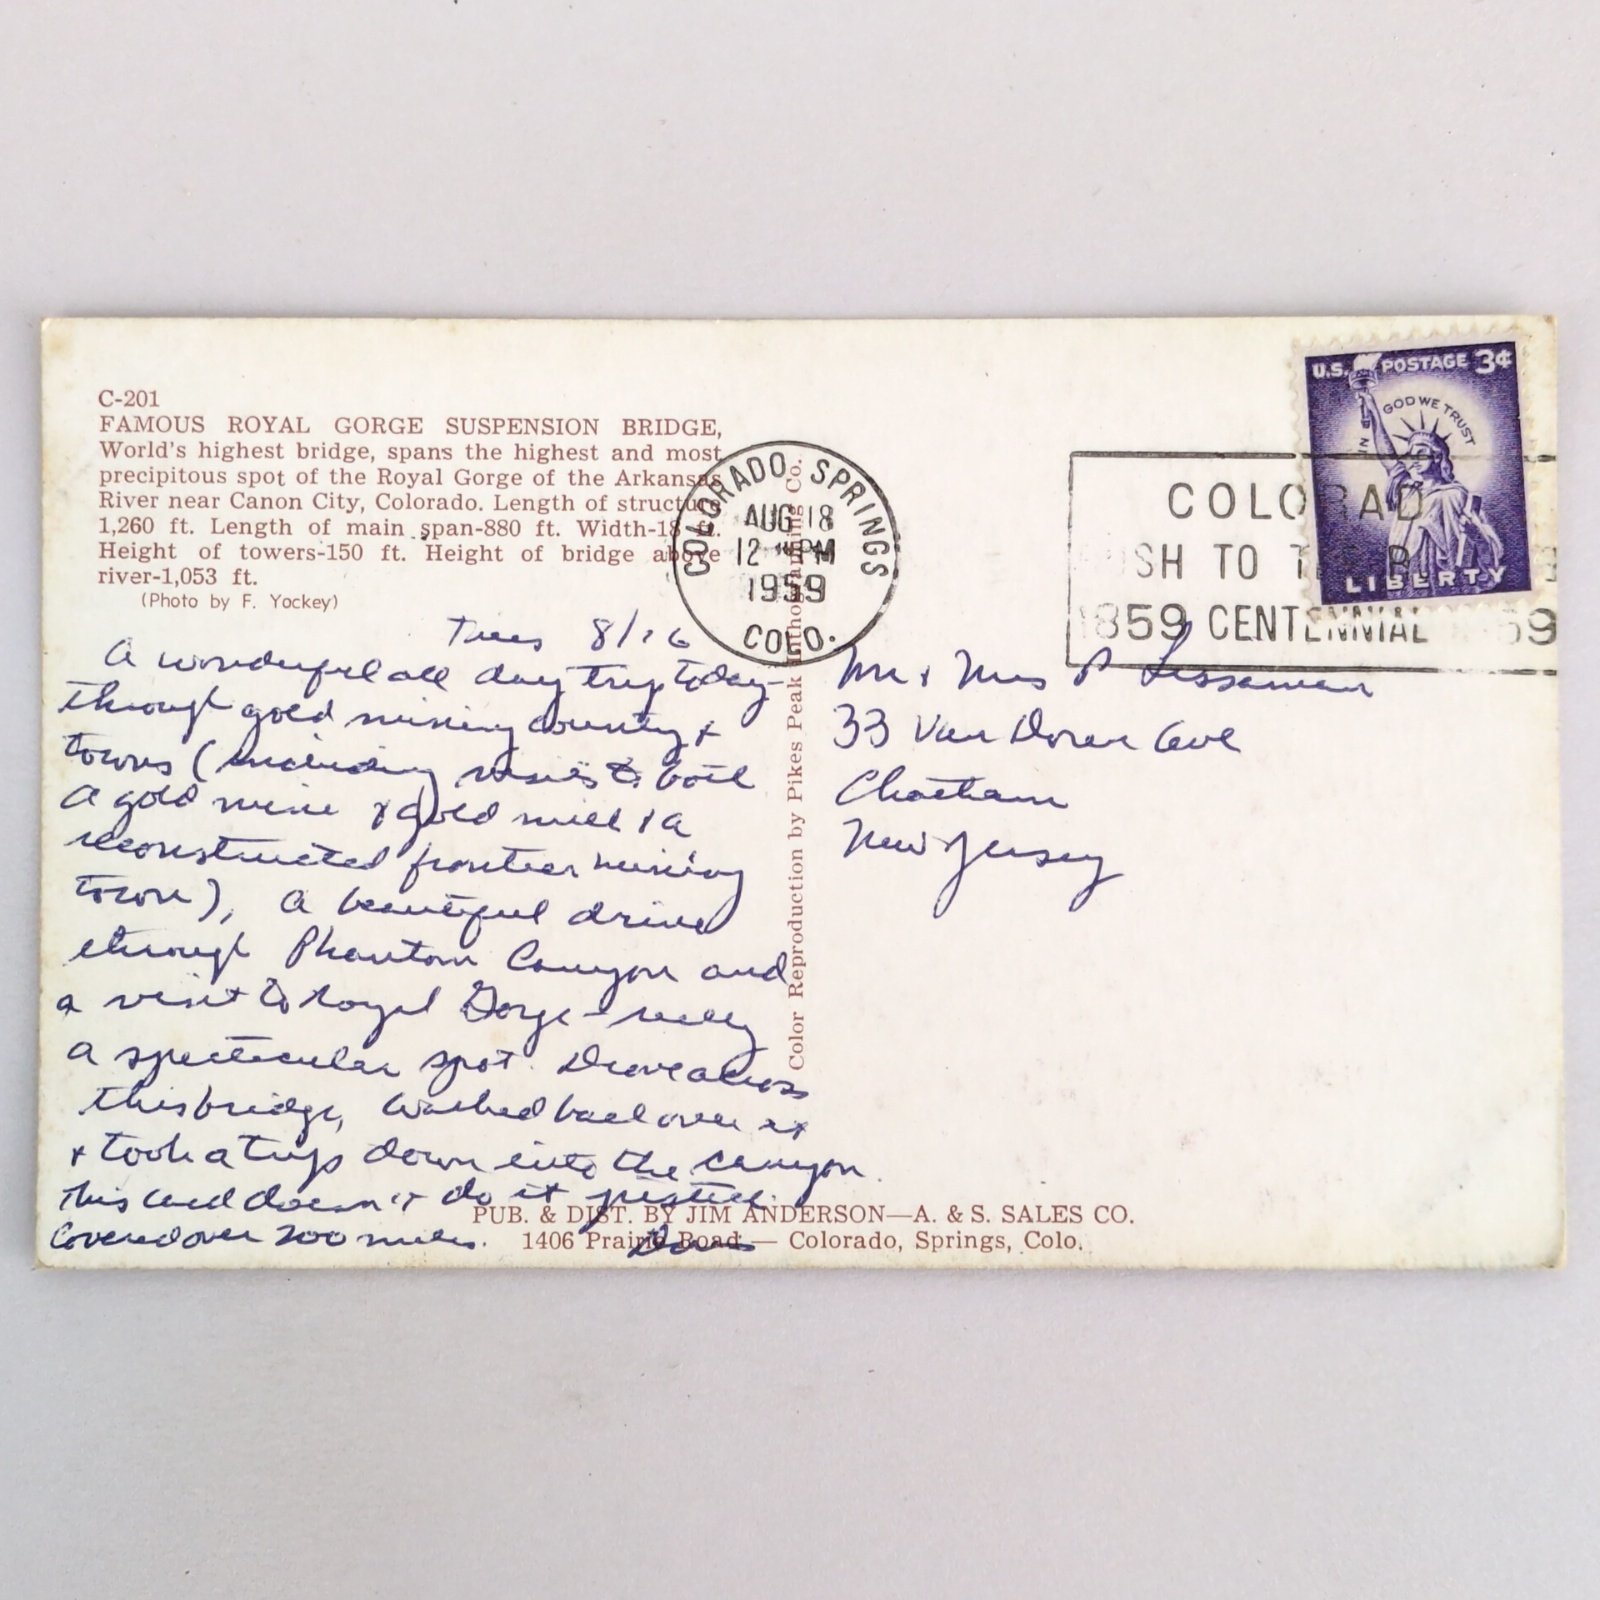 C-201
FAMOUS ROYAL GORGE SUSPENSION BRIDGE,
World's highest bridge, spans the highest and most
precipitous spot of the Royal Gorge of the Arkansas
River near Canon City, Colorado. Length of structure
1,260 ft. Length of main span-880 ft. Width-18 ft.
Height of towers-150 ft. Height of bridge above
river-1,053 ft.
(Photo by F. Yockey)
Tues 8/16
A wonderful all day trip today-
through gold mining country &
towns (including visits to both
a gold mine & gold mill & a
reconstructed frontier mining
town), a beautiful drive
through Phantom Canyon and
a visit to Royal Gorge - really
a spectacular spot. Drove across
this bridge, walked back over it
& took a trip down into the canyon.
This card doesn't do it justice.
Covered over 200 miles.
PUB. & DIST. BY JIM ANDERSON—A. & S. SALES CO.
1406 Prairie Road — Colorado, Springs, Colo.
Color Reproduction by Pikes Peak Co.
COLORADO SPRINGS
AUG 18
12 PM
1959
COLO.
U.S. POSTAGE 3¢
IN GOD WE TRUST
LIBERTY
COLORAD
SH TO T
1859 CENTENNIAL 59
Mr & Mrs P
33 Van Doren Ave
Chatham
New Jersey